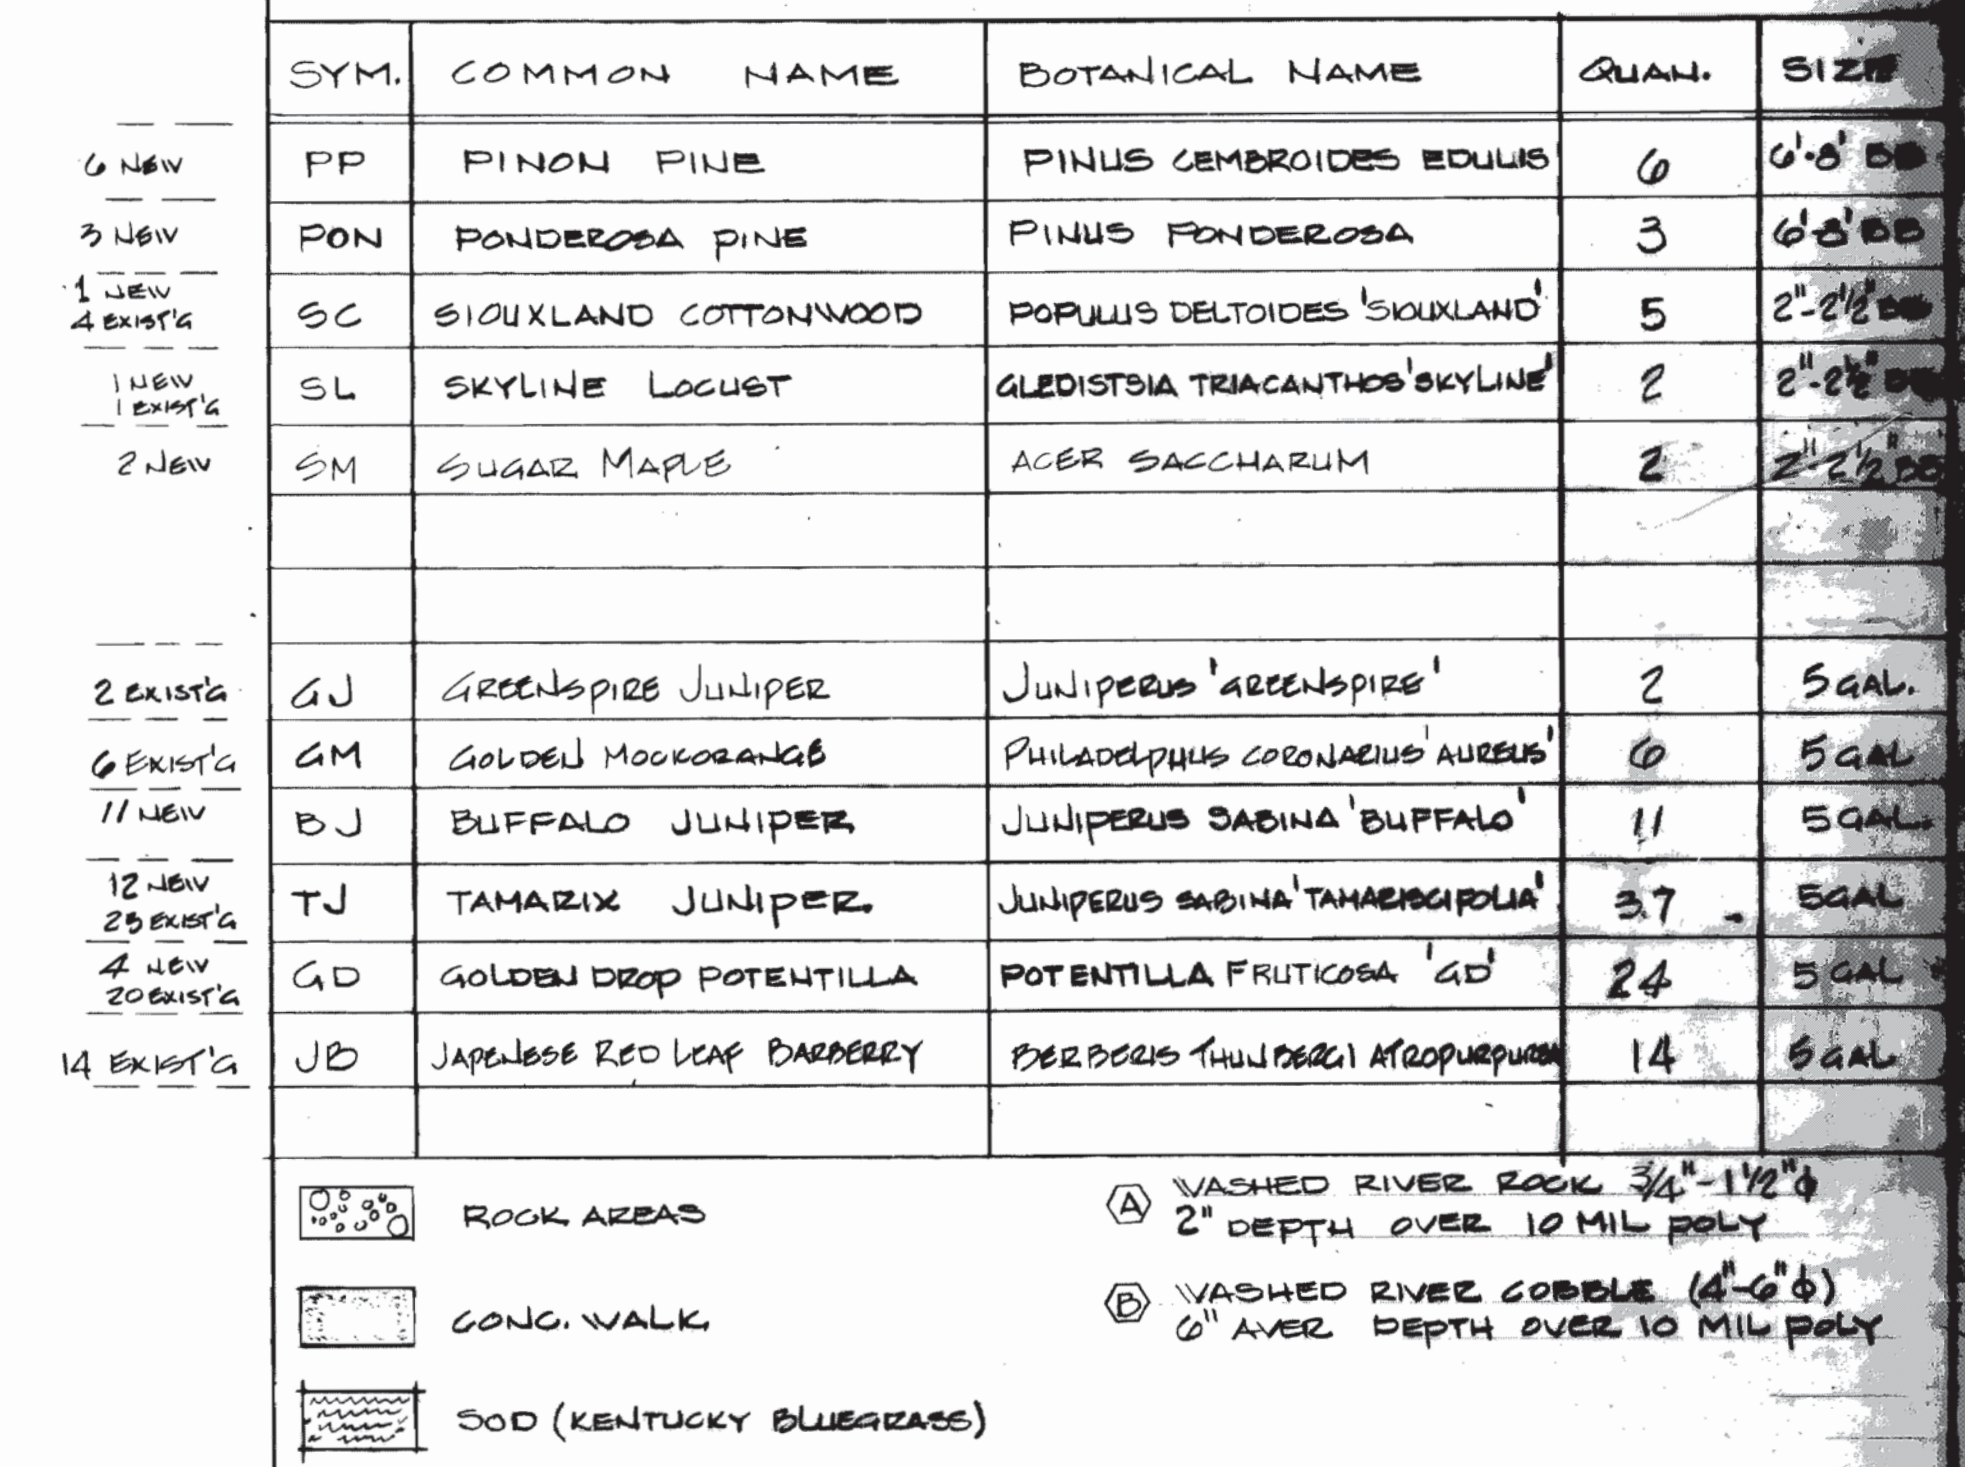 SYM. COMMON NAME BOTANICAL NAME QUAN. SIZE
6 NEW PP PINON PINE PINUS CEMBROIDES EDULIS 6 6'-8' BB
3 NEW PON PONDEROSA PINE PINUS PONDEROSA 3 6'-8' BB
1 NEW
4 EXIST'G SC SIOUXLAND COTTONWOOD POPULUS DELTOIDES 'SIOUXLAND' 5 2"-2½" BB
1 NEW
1 EXIST'G SL SKYLINE LOCUST GLEDISTSIA TRIACANTHOS 'SKYLINE' 2 2"-2½" BB
2 NEW SM SUGAR MAPLE ACER SACCHARUM 2 2"-2½" BB
2 EXIST'G GJ GREENSPIRE JUNIPER JUNIPERUS 'GREENSPIRE' 2 5 GAL.
6 EXIST'G GM GOLDEN MOCKORANGE PHILADELPHUS CORONARIUS 'AUREUS' 6 5 GAL
11 NEW BJ BUFFALO JUNIPER JUNIPERUS SABINA 'BUFFALO' 11 5 GAL.
12 NEW
25 EXIST'G TJ TAMARIX JUNIPER. JUNIPERUS SABINA 'TAMARISCIFOLIA' 37 5 GAL
4 NEW
20 EXIST'G GD GOLDEN DROP POTENTILLA POTENTILLA FRUTICOSA 'GD' 24 5 GAL
14 EXIST'G JB JAPENESE RED LEAF BARBERRY BERBERIS THUNBERGI ATROPURPUREA 14 5 GAL
ROCK AREAS
CONC. WALK
SOD (KENTUCKY BLUEGRASS)
A WASHED RIVER ROCK 3/4"-1½"ϕ
2" DEPTH OVER 10 MIL POLY
B WASHED RIVER COBBLE (4"-6"ϕ)
6" AVER DEPTH OVER 10 MIL POLY